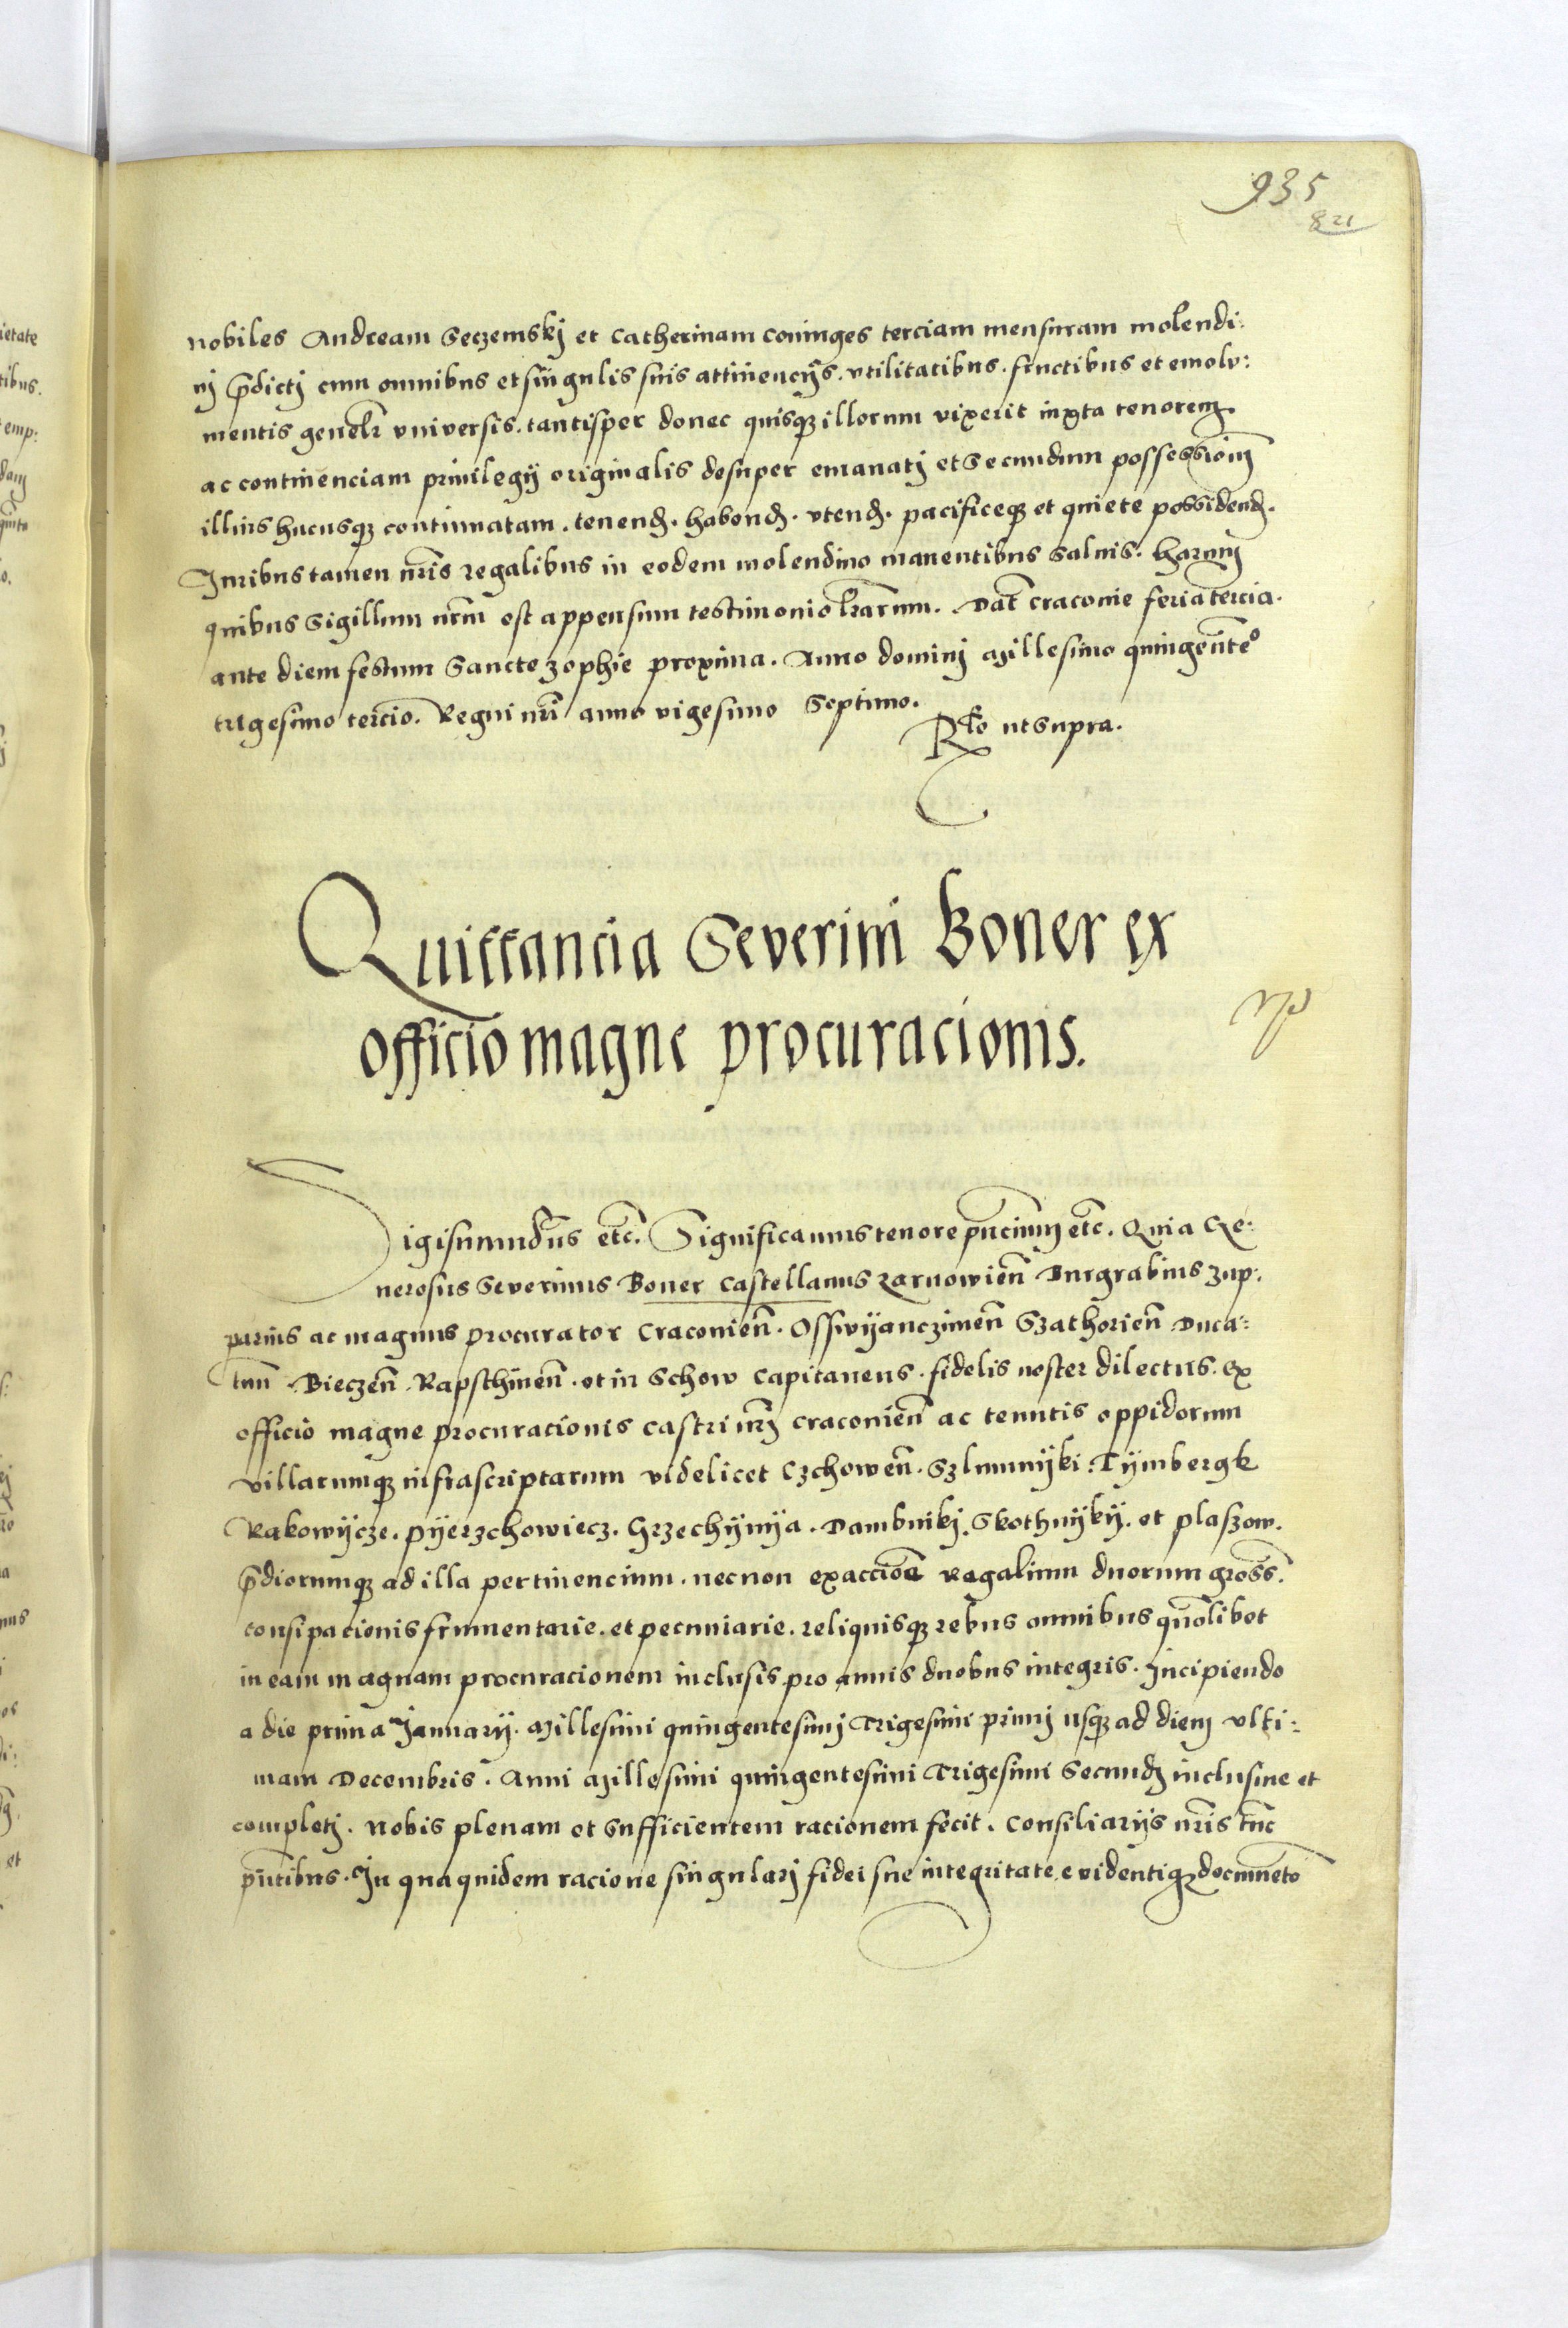 935
821
nobiles Andream Seczemskj et Catherinam coniuges terciam mensuram molendi:
nj p̄dictj cum omnibus et singulis suis attinencijs. vtilitatibus. fructibus et emolu:
mentis genel̄r vniversis. tantisper donec quisqꝫ illorum vixerit iuxta tenorem
ac continenciam priuilegij originalis desuper emanatj et Secundum possessionem
illius hucusqꝫ continuatam. tenend. habend. vtend. pacificeqꝫ et quiete possidend.
Iuribus tamen nr̄is regalibus in eodem molendino manentibus saluis. harum
quibus Sigillum nr̄m est appensum testimonio lr̄arum. Dat̄ Craconie feria tercia
ante diem festum Sancte Zophie proxima. Anno dominj Millesimo quingenteᵒ
trigesimo tercio. Regni nr̄i anno vigesimo Septimo.
R̄lo ut Supra.
Quittancia Severini Boner ex
officio magne procuracionis.
Sigismundus etc̄. Significamus tenore pn̄cium etc̄. Quia Ge:
nerosus Severinus Boner Castellanus Zarnowien̄ Burgrabius zup:
parius ac magnus procurator Craconien̄. Osswyanczimen̄ Szathorien̄ Duca:
tuū Bieczen̄. Rapsthinen̄. et in Schow Capitaneus. fidelis noster dilectus. Ex
officio magne procuracionis castri nr̄j Craconien̄ ac tenutis oppidorum
villarumqꝫ infrascriptarum videlicet Czchowen̄. Szlumnyki. Tymbergk
Rakowycze. Pyerzchowiecz. Grzechynya. Dambnikj. Skothnykij. et Plaszow.
p̄diorumqꝫ ad illa pertinencium. necnon exaccione Regalium duorum gross.
consipacionis frumentarie. et pecuniarie. reliquisqꝫ rebus omnibus quōlibet
in eam magnam procuracionem inclusis pro annis duobus integris. Incipiendo
a die prima Ianuarij. Millesimi quingentesimj Trigesimi primj usqꝫ ad diem vlti:
mam Decembris. Anni Millesimi quingentesimi Trigesimi Secundj inclusiue et
completj. Nobis plenam et sufficientem racionem fecit. Consiliarijs nr̄is tūc
pn̄tibus. In qua quidem racione singularj fidei sue integritate evidentiqꝫ documēto